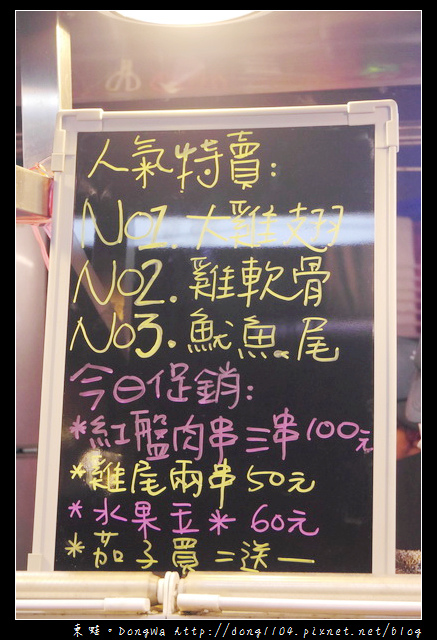 人氣特賣:
No1.大雞翅
No2.雞軟骨
No3.魷魚尾
今日促銷:
*紅盤肉串三串100元
*雞尾兩串50元
*水果玉米 60元
*茄子買二送一
東蛙。DongWa http://dong1104.pixnet.net/blog